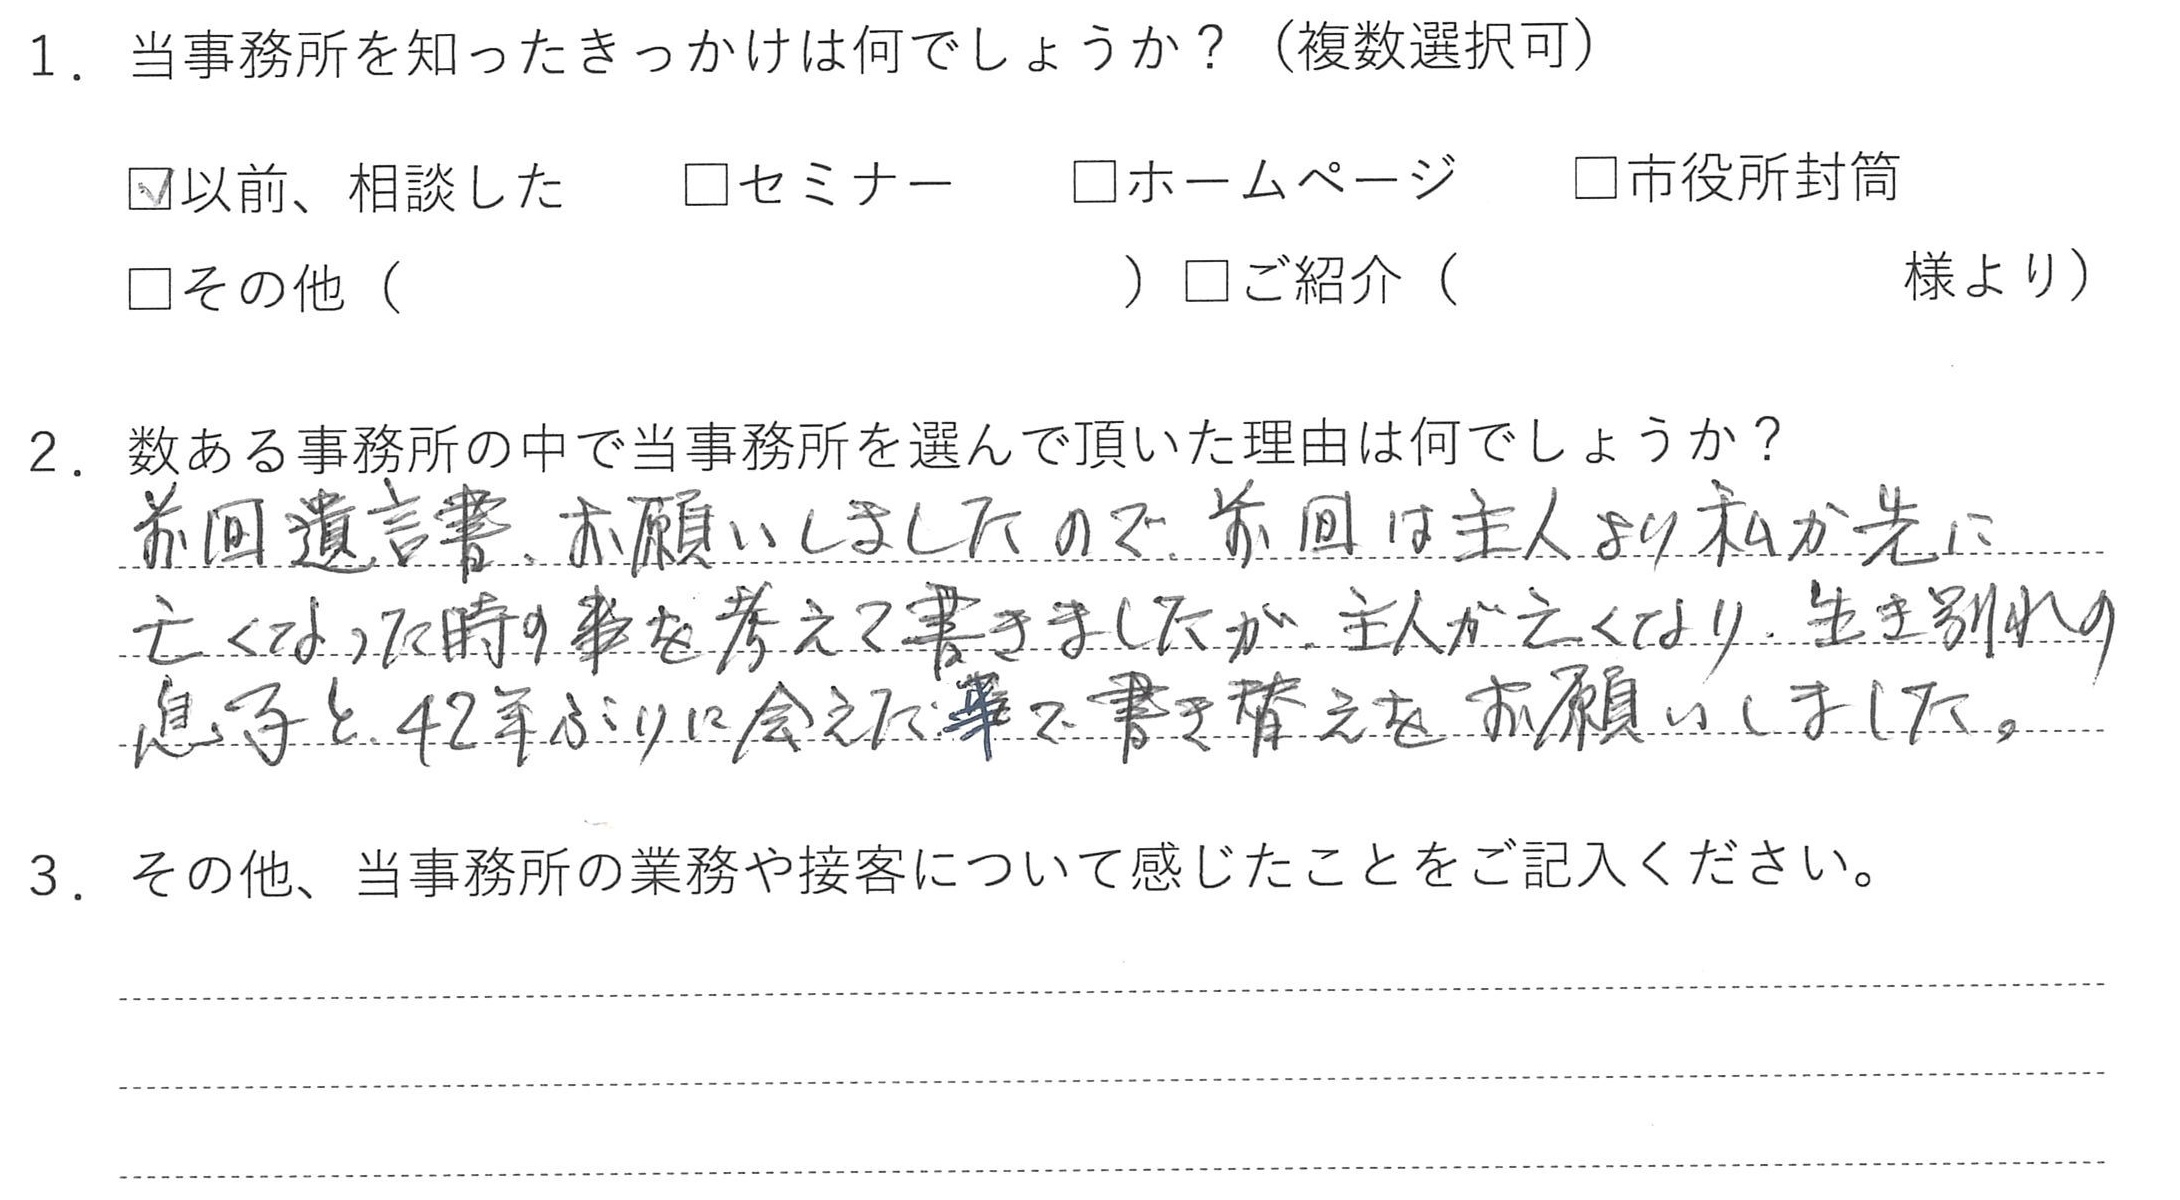 1. 当事務所を知ったきっかけは何でしょうか？（複数選択可）
☑以前、相談した　□セミナー　□ホームページ　□市役所封筒
□その他（　　　）□ご紹介（　　　様より）
2. 数ある事務所の中で当事務所を選んで頂いた理由は何でしょうか？
前回遺言書、お願いしましたので、前回は主人より私が先に
亡くなった時の事を考えて書きましたが、主人が亡くなり、生き別れの
息子と、42年ぶりに会えた事で書き替えをお願いしました。
3. その他、当事務所の業務や接客について感じたことをご記入ください。